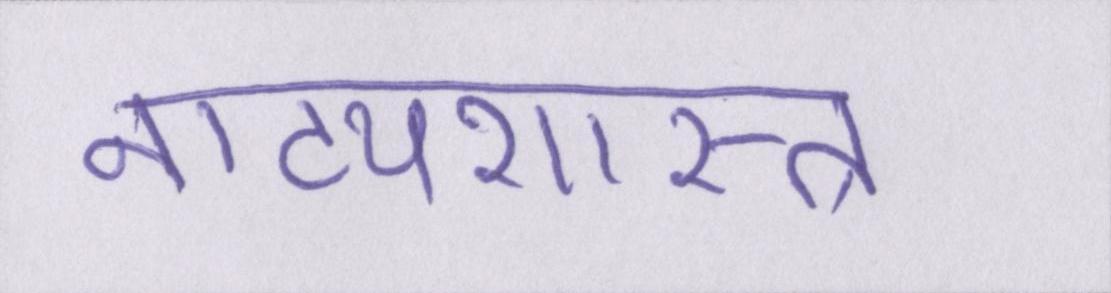 नाट्यशास्त्र